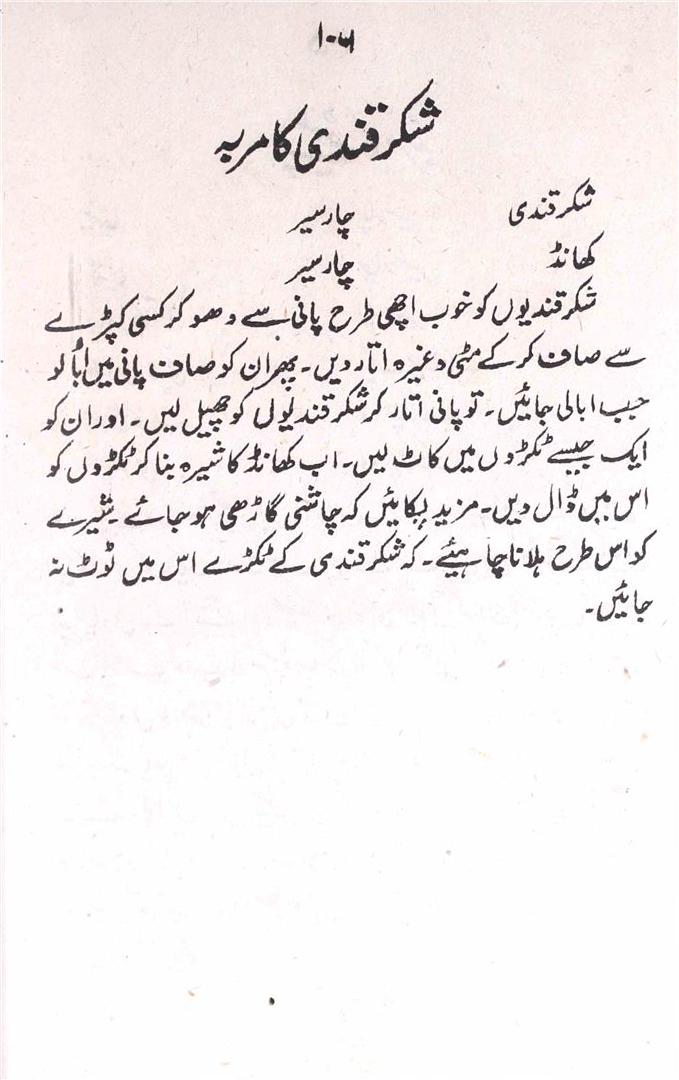 ۱۰۶
شکر قندی کا مربہ
شکر قندی چار سیر
کھانڈ چار سیر
شکر قندیوں کو خوب اچھی طرح پانی سے دھو کر کسی کپڑے
سے صاف کر کے مٹی وغیرہ اتار دیں۔ پھر ان کو صاف پانی میں ابالو
جب ابالی جائیں۔ تو پانی اتار کر شکر قندیوں کو چھیل لیں۔ اور ان کو
ایک جیسے ٹکڑوں میں کاٹ لیں۔ اب کھانڈ کا شیرہ بنا کر ٹکڑوں کو
اس میں ڈال دیں۔ مزید پکائیں کہ چاشنی گاڑھی ہو جائے۔ شیرے
کو اس طرح ہلانا چاہیئے۔ کہ شکر قندی کے ٹکڑے اس میں ٹوٹ نہ
جائیں۔